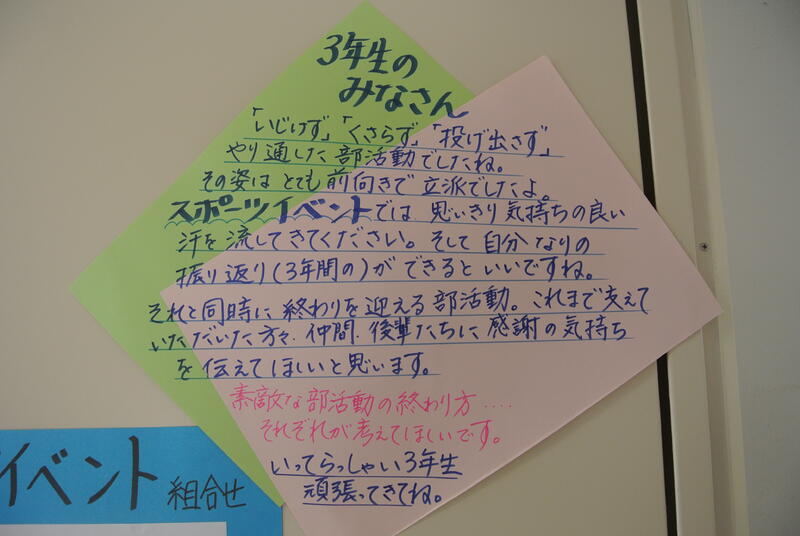 3年生の
みなさん
「いじけず」「くさらず」「投げ出さず」
やり通した部活動でしたね。
その姿はとても前向きで立派でしたよ。
スポーツイベントでは思いきり気持ちの良い
汗を流してきてください。そして自分なりの
振り返り(3年間の)ができるといいですね。
それと同時に終わりを迎える部活動。これまで支えて
いただいた方々、仲間、後輩たちに感謝の気持ち
を伝えてほしいと思います。
素敵な部活動の終わり方‥‥
それぞれが考えてほしいです。
いってらっしゃい3年生
頑張ってきてね。
イベント 組合せ